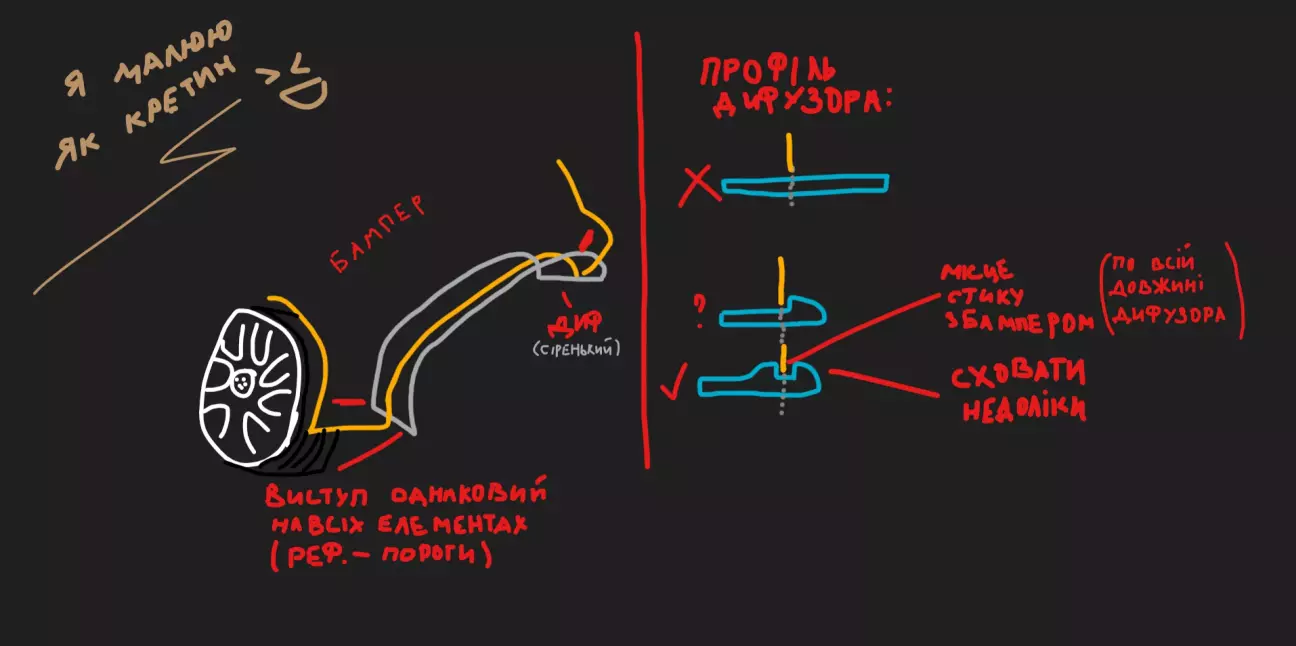 Я МАЛЮЮ
ЯК КРЕТИН >:D
БАМПЕР
ДИФ
(СІРЕНЬКИЙ)
ВИСТУП ОДНАКОВИЙ
НА ВСІХ ЕЛЕМЕНТАХ
(РЕФ. – ПОРОГИ)
ПРОФІЛЬ
ДИФУЗОРА:
?
МІСЦЕ
СТИКУ
З БАМПЕРОМ
(ПО ВСІЙ
ДОВЖИНІ
ДИФУЗОРА)
СХОВАТИ
НЕДОЛІКИ